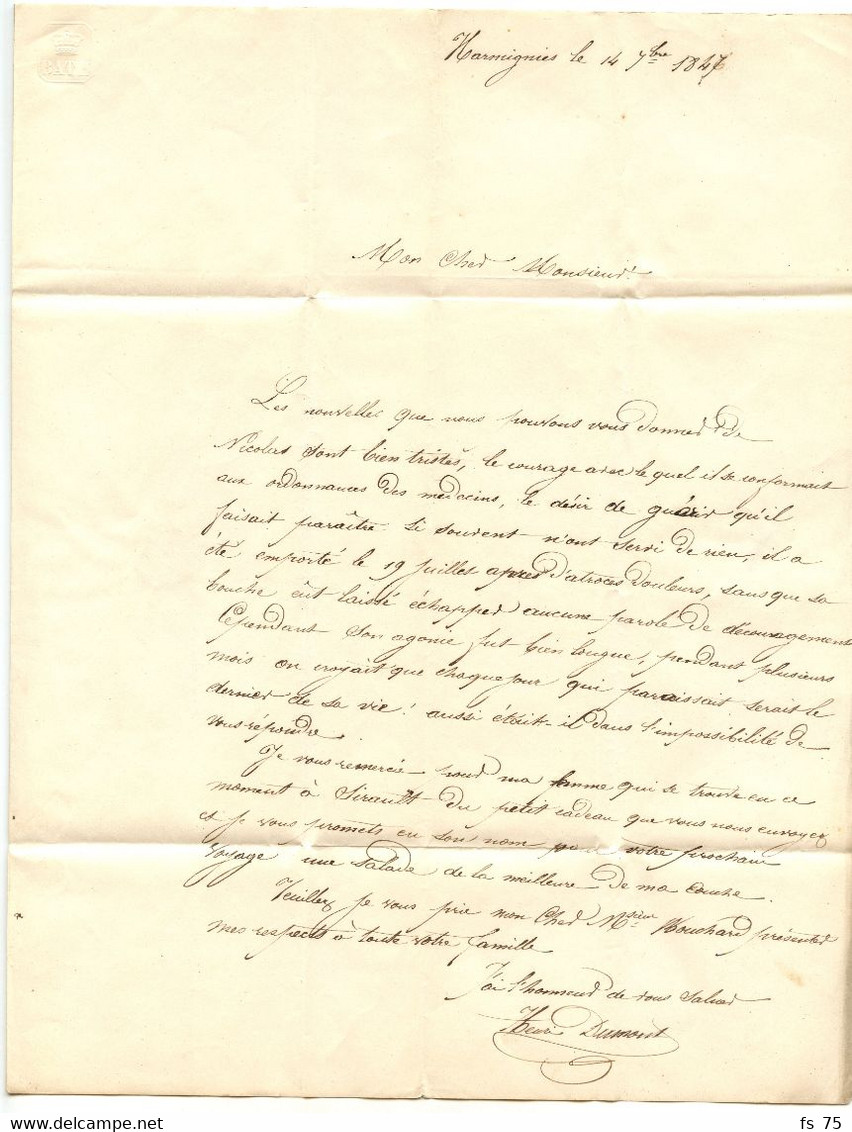 BATH
Harmignies le 14 7bre 1847
Mon Cher Monsieur!
Les nouvelles que nous pouvons vous donner de
Nicolas sont bien tristes, le courage avec le quel il se conformait
aux ordonnances des medecins, le désir de guérir qu'il
faisait paraître si souvent n'ont servi de rien, il a
été emporté le 19 juillet apres d'atroces douleurs, sans que sa
bouche eût laissé échapper aucune parole de découragement
Cependant son agonie fut bien longue, pendant plusieurs
mois on croyait que chaque jour qui paraissait serait le
dernier de sa vie! aussi était-il dans l'impossibilité de
vous repondre.
Je vous remercie pour ma femme qui se trouve en ce
moment à Sirault du petit cadeau que vous nous envoyez
et je vous promets en son nom pour votre prochain
voyage une salade de la meilleure de ma couche.
Veuillez je vous prie mon Cher Msieur Houchard présenter
mes respects à toute votre famille
J'ai l'honneur de vous saluer
Henri Dumont
fs 75